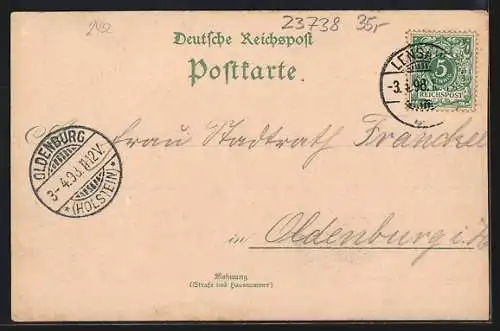 2492 23738 35,-
Deutsche Reichspost
Postkarte.
LENSA
-3.4.98.
5
REICHSPOST
OLDENBURG
3-4.98.11-12V.
* (HOLSTEIN) *
Frau Stadtrath Franckel
in Oldenburg i.
Wohnung
(Straße und Hausnummer)